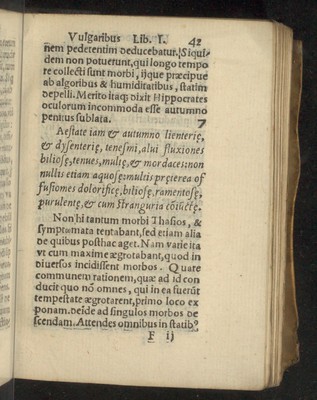 Vulgaribus Lib. I. 42
nem pedetentim deducebatur. Siqui-
dem non potuerunt, qui longo tempo
re collecti sunt morbi, ijque præcipue
ab algoribus & humiditatibus, statim
depelli. Merito itaq; dixit Hippocrates
oculorum incommoda esse autumno
penitus sublata. 7
Aestate iam & autumno lienterię,
& dysenterię, tenesmi, alui fluxiones
biliosę, tenues, multę, & mordaces: non
nullis etiam aquosę: multis pręterea of
fusiones dolorificę, biliosę, ramentosę,
purulentę, & cum stranguria cōiūctę.
Non hi tantum morbi Thasios, &
symptomata tentabant, sed etiam alia
de quibus posthac aget. Nam varie ita
vt cum maxime ægrotabant, quod in
diuersos incidissent morbos. Quare
communem rationem, quæ ad id con
ducit quo nō omnes, qui in ea fuerūt
tempestate ægrotarent, primo loco ex
ponam. deīde ad singulos morbos de
scendam. Attendes omnibus in statibꝰ
F ij